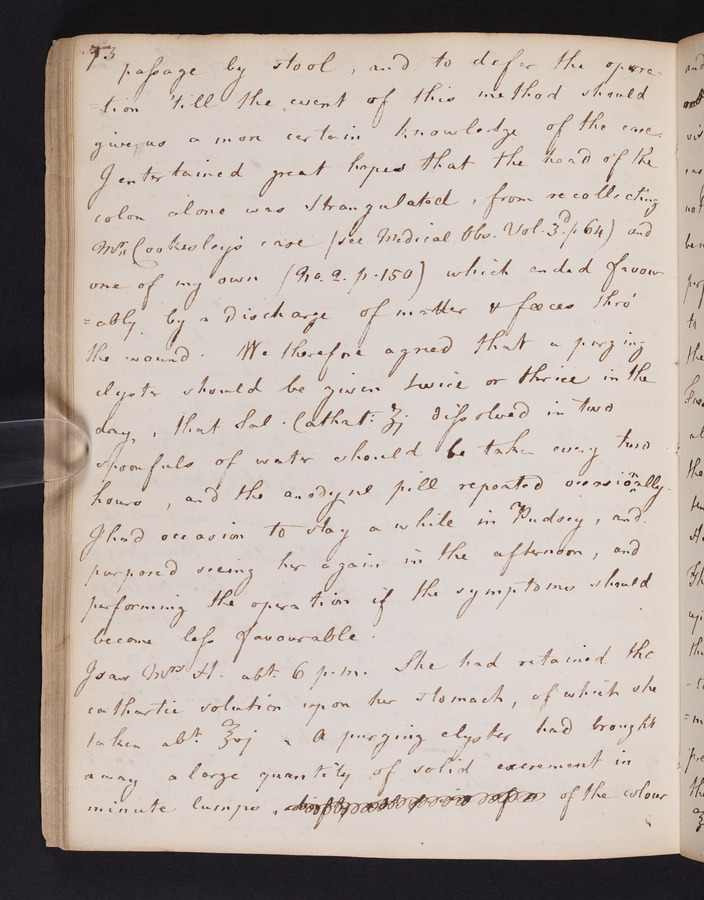 73
passage by stool, and to defer the opera-
-tion 'till the event of this method should
give us a more certain knowledge of the case.
I entertained great hopes that the head of the
colon alone was strangulated, from recollecting
Mr. Cookesley's case (see Medical Obs. Vol. 3d. p 64) and
one of my own (No. 2. p. 150) which ended favour-
=ably by a discharge of matter & fæces thro'
the wound. We therefore agreed that a purging
clyster should be given twice or thrice in the
day, that Sal. Cathat: ʒj dissolved in two
spoonfuls of water should be taken every two
hours, and the anodyne pill repeated occasionally.
I had occasion to stay a while in Pudsey, and
purposed seeing her again in the afternoon, and
performing the operation if the symptoms should
become less favourable.
I saw Mrs. H. abt. 6 p.m. She had retained the
cathartic solution upon her stomach, of which she
taken abt. ʒvj. A purging clyster had brought
away a large quantity of solid excrement in
minute lumps, of the colour